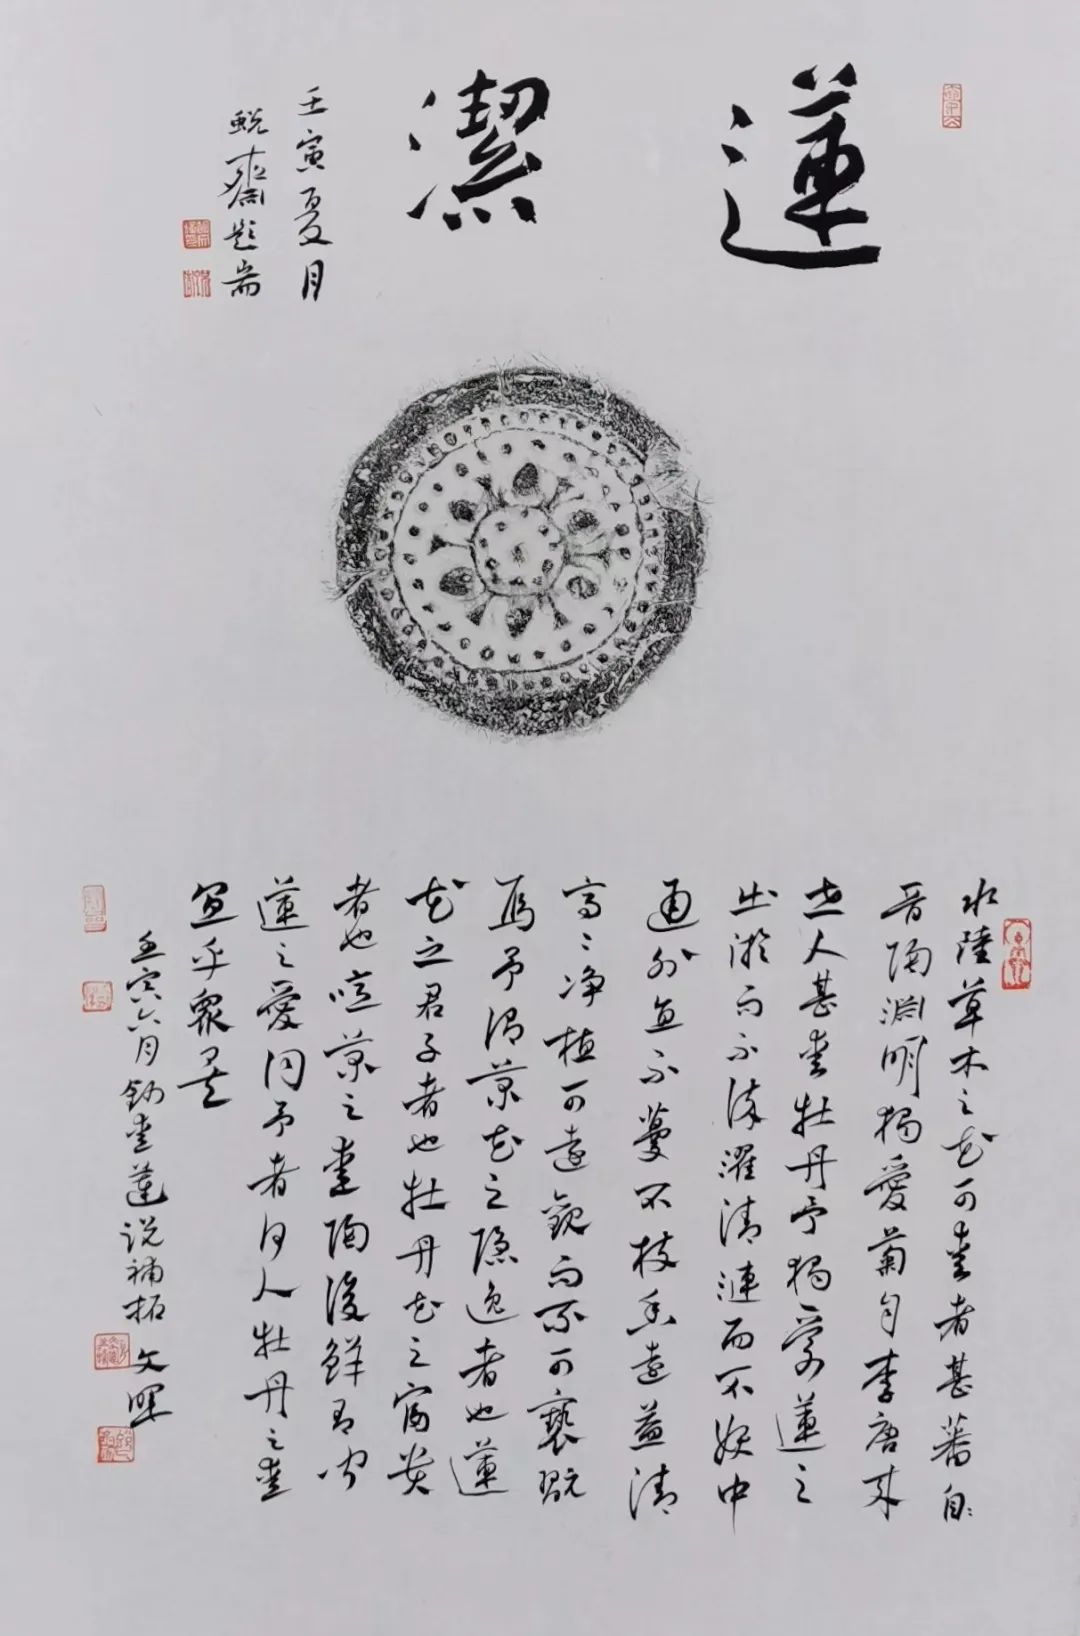 蓮潔
壬寅夏月
蜕齋題耑
水陸草木之花可爱者甚蕃自
晋陶淵明獨愛菊自李唐来
世人甚爱牡丹予獨爱蓮之
出淤而不染濯清漣而不妖中
通外直不蔓不枝香遠益清
亭〻净植可遠觀而不可褻翫
焉予谓菊花之隐逸者也蓮
花之君子者也牡丹花之富贵
者也噫菊之爱陶後鲜有闻
蓮之愛同予者何人牡丹之爱
宜乎眾矣
壬寅六月鈔爱蓮说補拓文暉